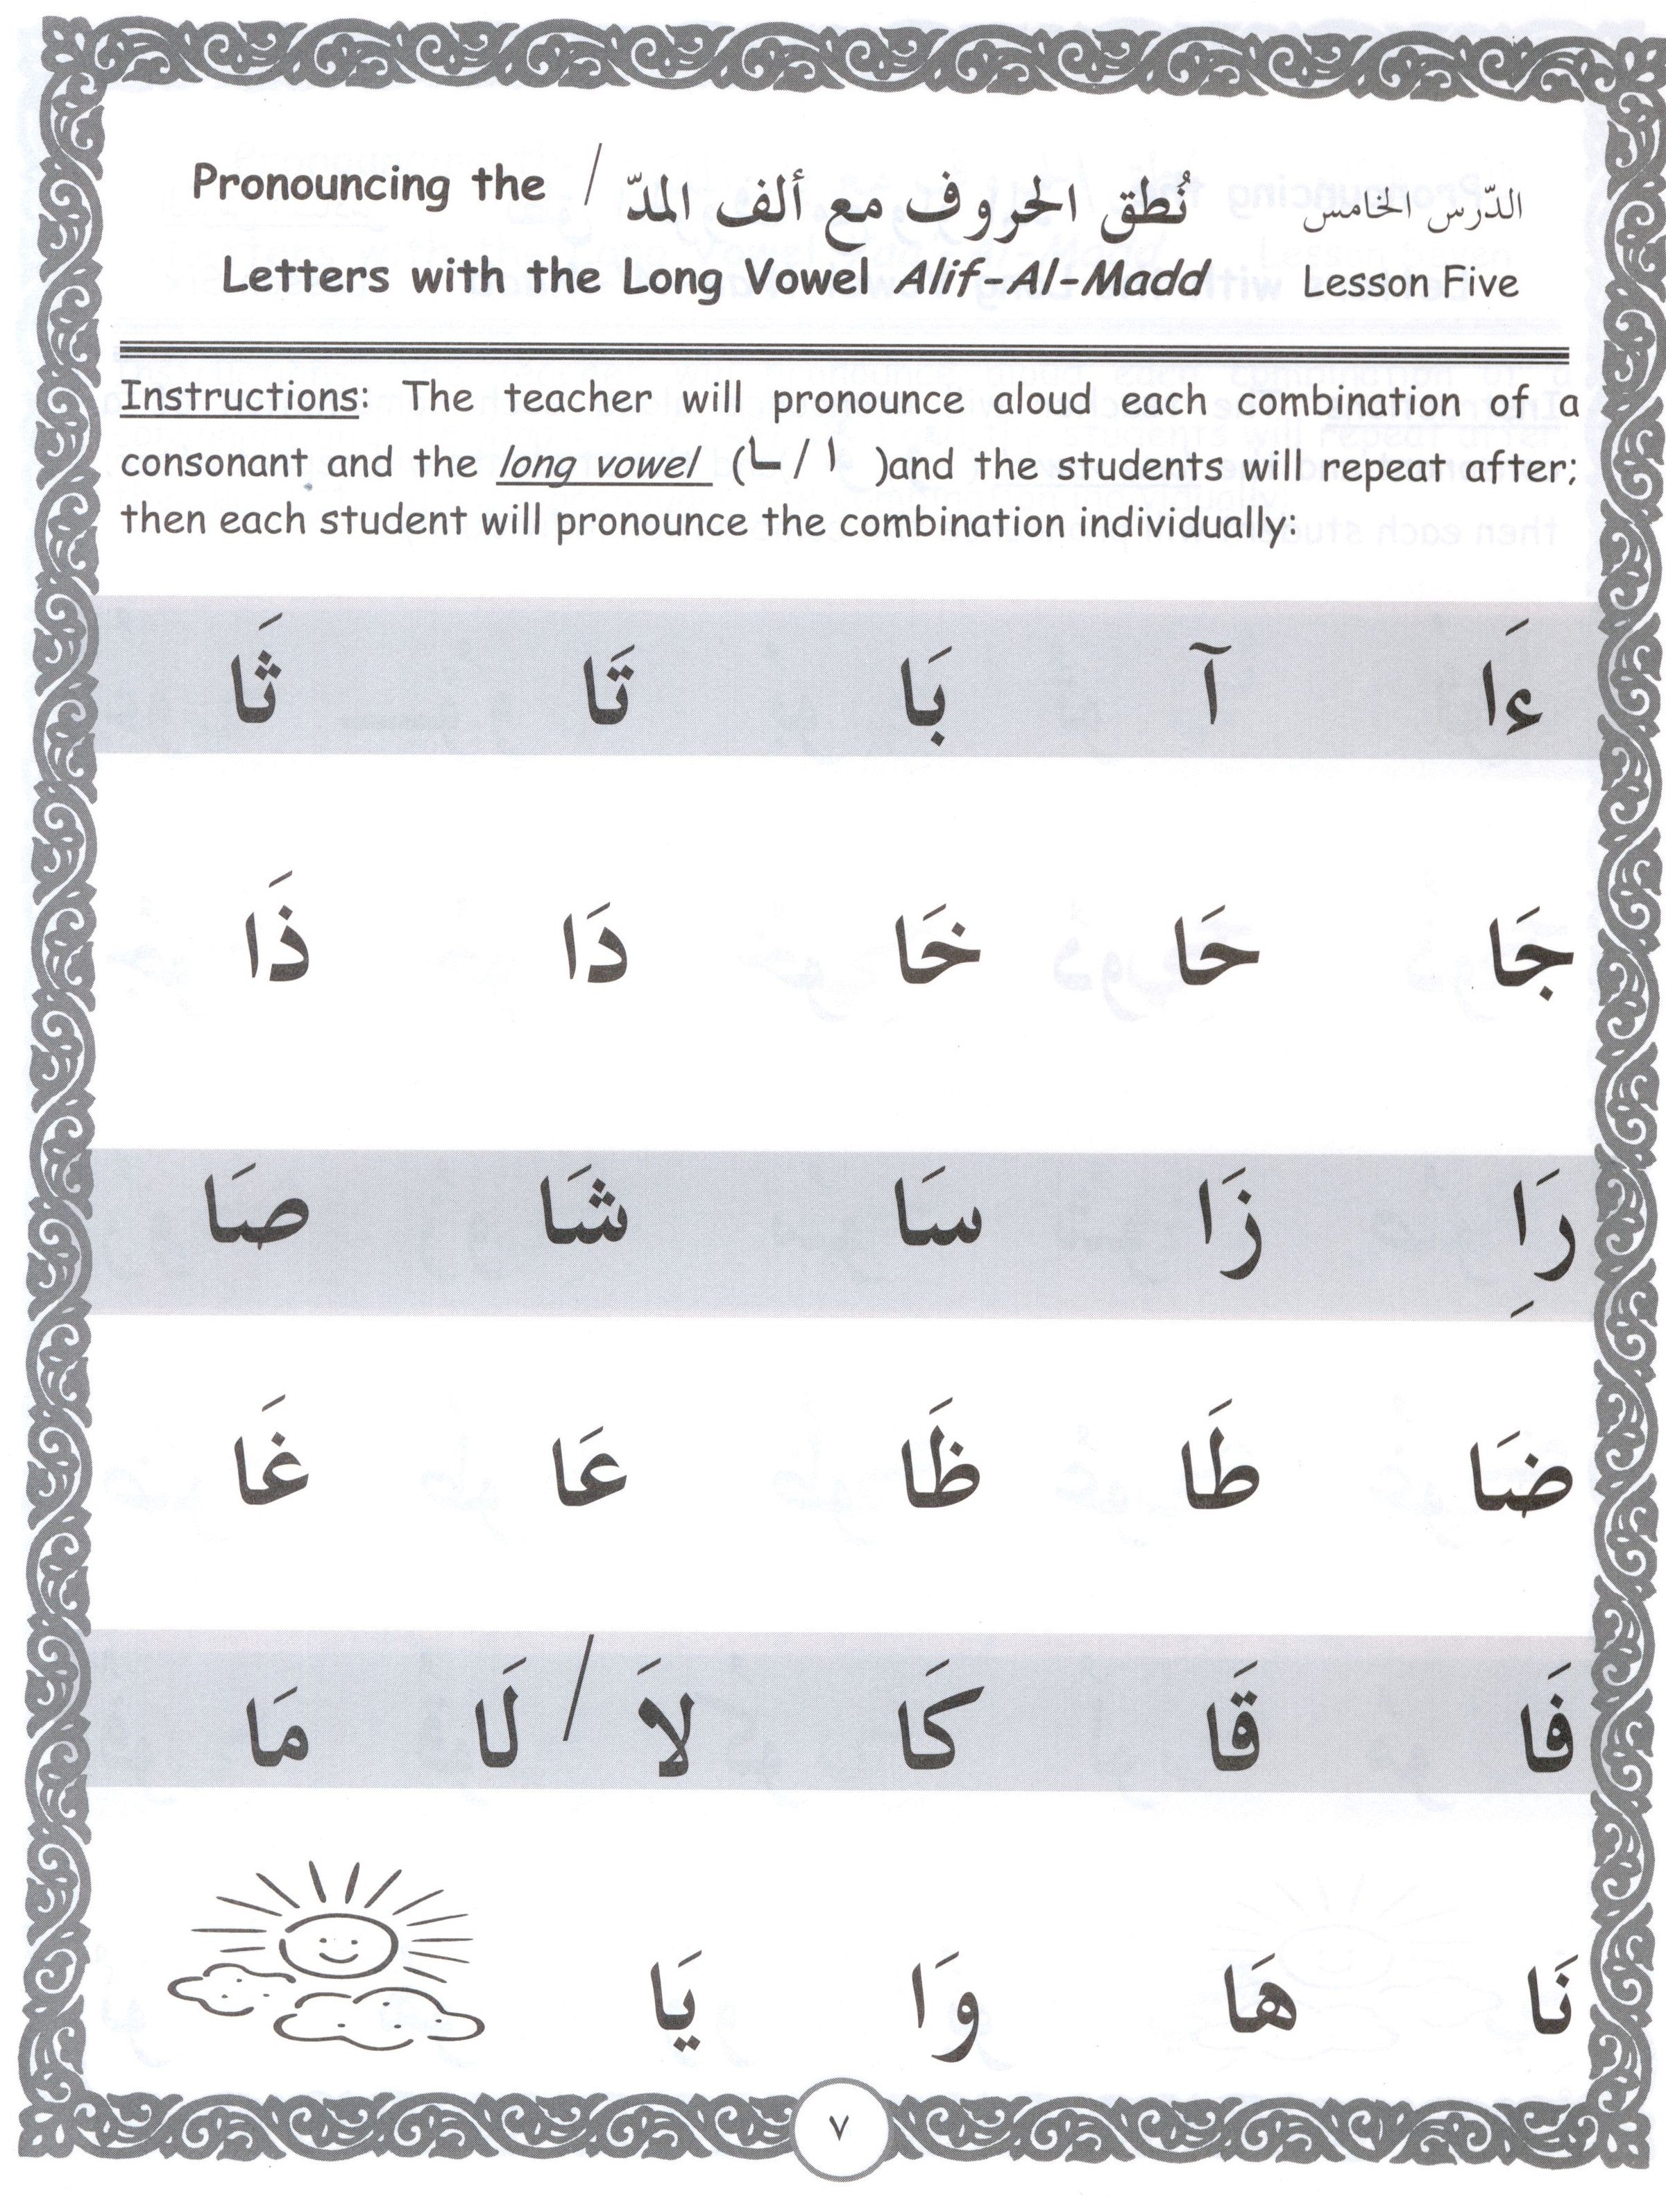 الدّرس الخامس نُطق الحروف مع ألف المدّ / Pronouncing the
Letters with the Long Vowel Alif-Al-Madd Lesson Five
Instructions: The teacher will pronounce aloud each combination of a
consonant and the long vowel (ـا / ا )and the students will repeat after;
then each student will pronounce the combination individually:
ءَا آ بَا تَا ثَا
جَا حَا خَا دَا ذَا
رَِا زَا سَا شَا صَا
ضَا طَا ظَا عَا غَا
فَا قَا كَا لاَ / لَا مَا
نَا هَا وَا يَا
٧